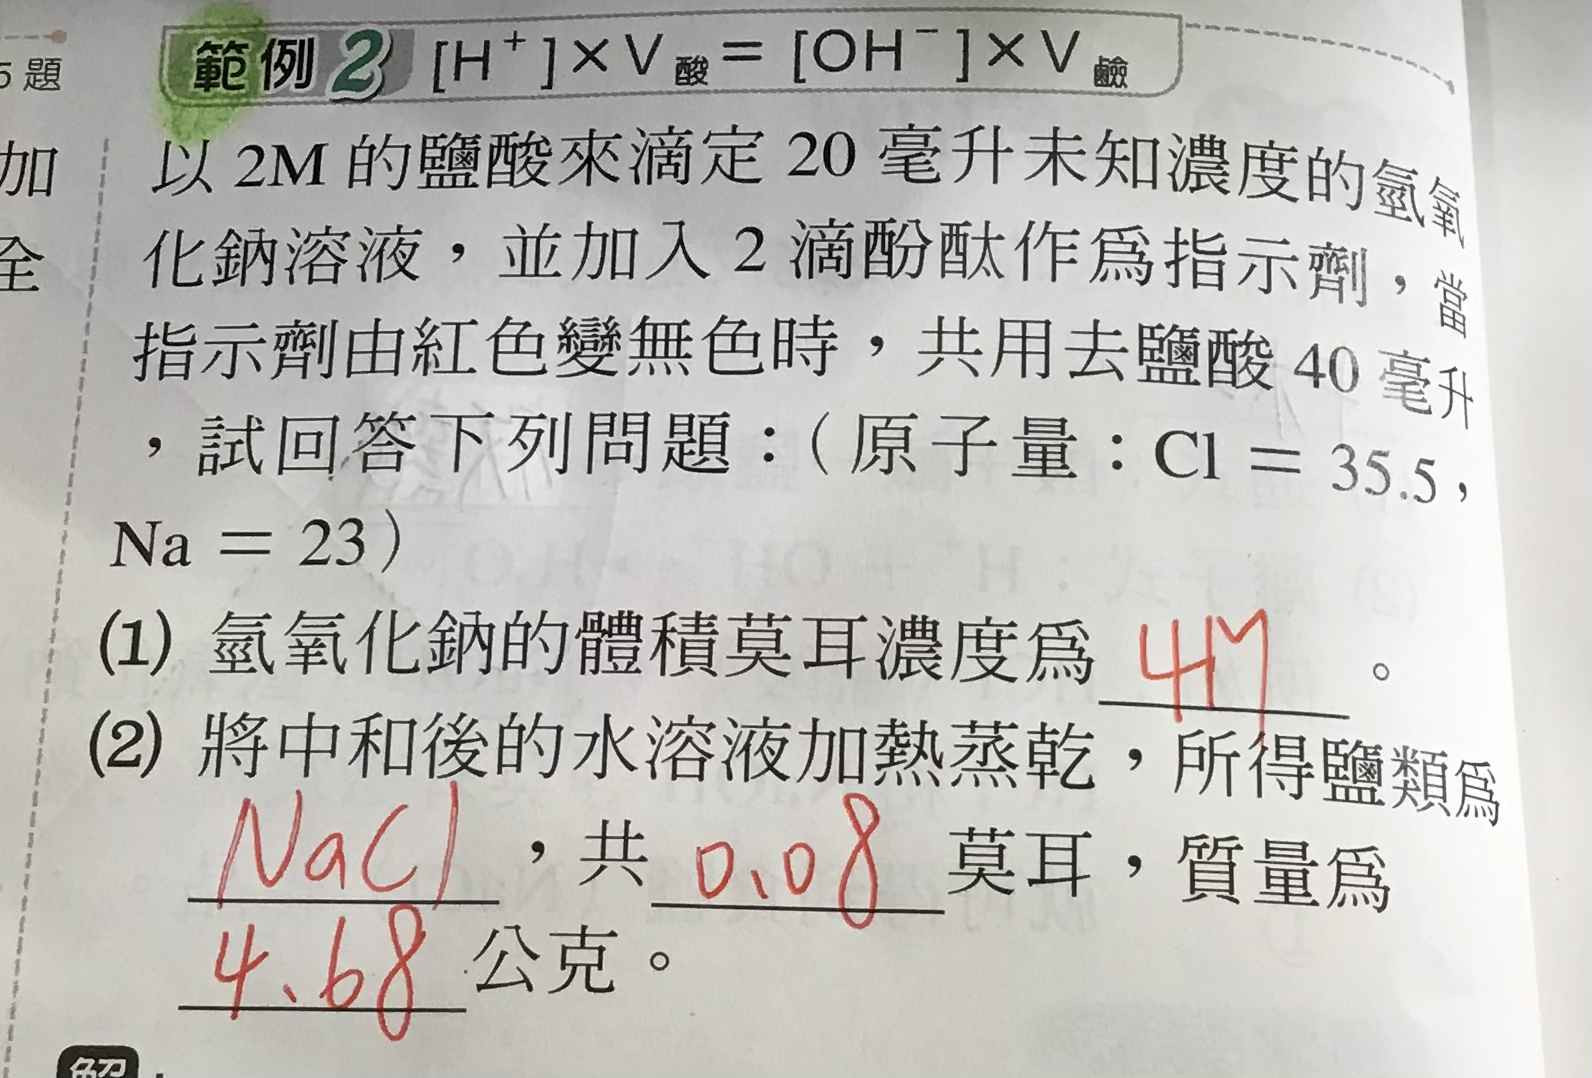 5 題
加
全
範例 2 [H⁺]×V酸=[OH⁻]×V鹼
以 2M 的鹽酸來滴定 20 毫升未知濃度的氫氧
化鈉溶液，並加入 2 滴酚酞作爲指示劑，當
指示劑由紅色變無色時，共用去鹽酸 40 毫升
，試回答下列問題：（原子量：Cl = 35.5，
Na = 23）
(1) 氫氧化鈉的體積莫耳濃度爲 4M 。
(2) 將中和後的水溶液加熱蒸乾，所得鹽類爲
NaCl ，共 0.08 莫耳，質量爲
4.68 公克。